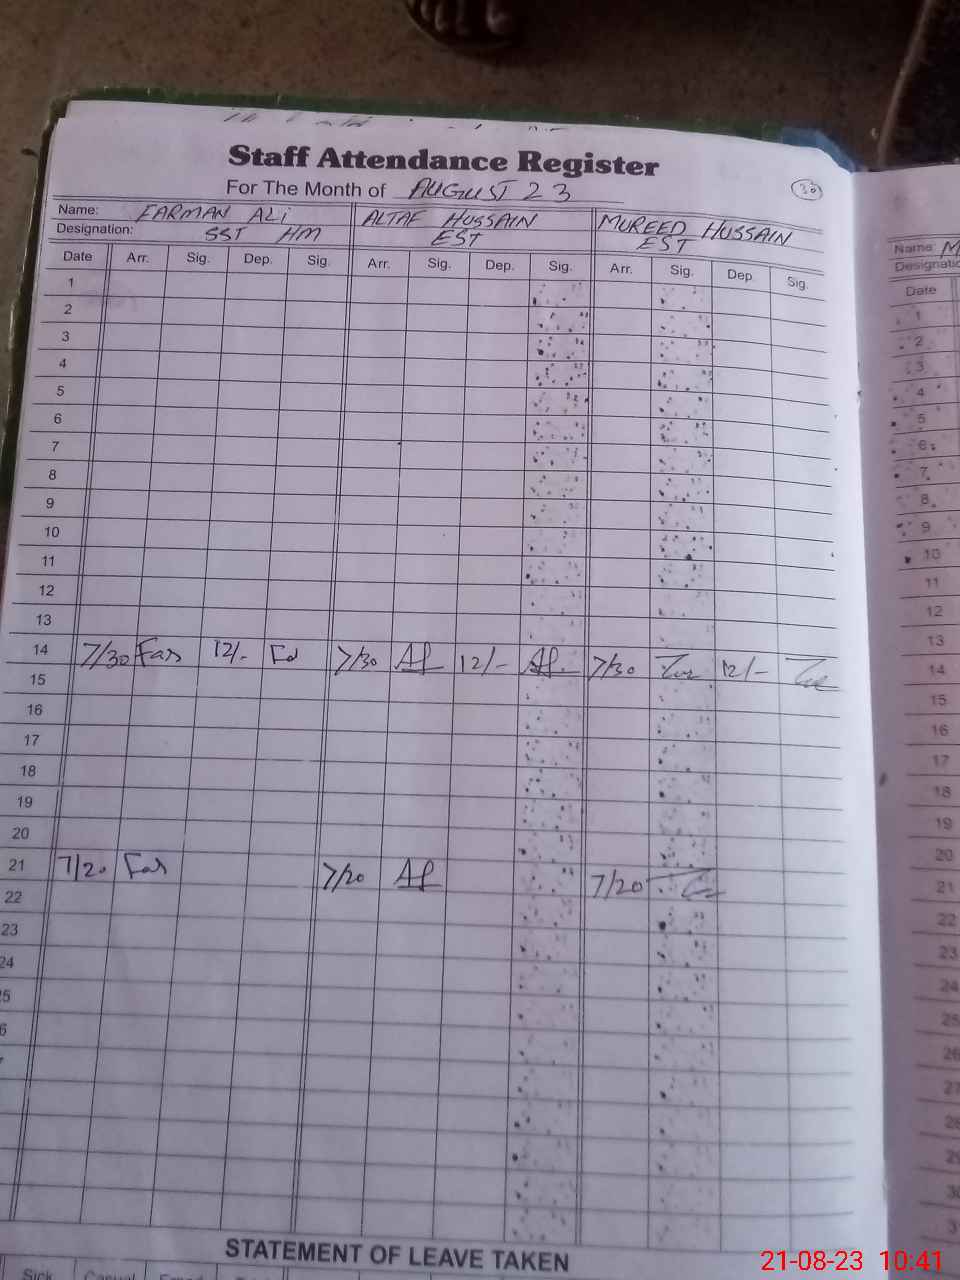 Staff Attendance Register
For The Month of AUGUST 23
30
Name: FARMAN ALi ALTAF HUSSAIN MUREED HUSSAIN
Designation: SST HM EST EST
Date Arr. Sig. Dep. Sig. Arr. Sig. Dep. Sig. Arr. Sig. Dep. Sig.
1
2
3
4
5
6
7
8
9
10
11
12
13
14 7/30 Far 12/- 7/30 Af 12/- Af 7/30 12/-
15
16
17
18
19
20
21 7/20 Far 7/20 Af 7/20
22
23
24
5
6
STATEMENT OF LEAVE TAKEN
Sick Casual
Name: M
Designatio
Date
1
2
3
4
5
6
7
8
9
10
11
12
13
14
15
16
17
18
19
20
21
22
23
24
25
26
27
28
29
30
3
21-08-23 10:41